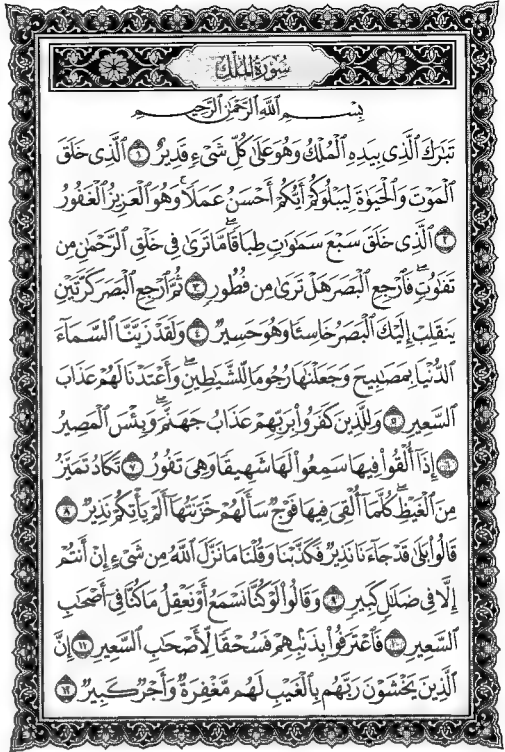 سُورَةُ المُلْكِ
بِسْمِ ٱللَّهِ ٱلرَّحْمَٰنِ ٱلرَّحِيمِ
تَبَٰرَكَ ٱلَّذِي بِيَدِهِ ٱلْمُلْكُ وَهُوَ عَلَىٰ كُلِّ شَيْءٍ قَدِيرٌ ١ ٱلَّذِي خَلَقَ
ٱلْمَوْتَ وَٱلْحَيَوٰةَ لِيَبْلُوَكُمْ أَيُّكُمْ أَحْسَنُ عَمَلًا ۚ وَهُوَ ٱلْعَزِيزُ ٱلْغَفُورُ
٢ ٱلَّذِي خَلَقَ سَبْعَ سَمَٰوَٰتٍ طِبَاقًا ۖ مَّا تَرَىٰ فِي خَلْقِ ٱلرَّحْمَٰنِ مِن
تَفَٰوُتٍ ۖ فَٱرْجِعِ ٱلْبَصَرَ هَلْ تَرَىٰ مِن فُطُورٍ ٣ ثُمَّ ٱرْجِعِ ٱلْبَصَرَ كَرَّتَيْنِ
يَنقَلِبْ إِلَيْكَ ٱلْبَصَرُ خَاسِئًا وَهُوَ حَسِيرٌ ٤ وَلَقَدْ زَيَّنَّا ٱلسَّمَآءَ
ٱلدُّنْيَا بِمَصَٰبِيحَ وَجَعَلْنَٰهَا رُجُومًا لِّلشَّيَٰطِينِ ۖ وَأَعْتَدْنَا لَهُمْ عَذَابَ
ٱلسَّعِيرِ ٥ وَلِلَّذِينَ كَفَرُوا۟ بِرَبِّهِمْ عَذَابُ جَهَنَّمَ ۖ وَبِئْسَ ٱلْمَصِيرُ
٦ إِذَآ أُلْقُوا۟ فِيهَا سَمِعُوا۟ لَهَا شَهِيقًا وَهِيَ تَفُورُ ٧ تَكَادُ تَمَيَّزُ
مِنَ ٱلْغَيْظِ ۖ كُلَّمَآ أُلْقِيَ فِيهَا فَوْجٌ سَأَلَهُمْ خَزَنَتُهَآ أَلَمْ يَأْتِكُمْ نَذِيرٌ ٨
قَالُوا۟ بَلَىٰ قَدْ جَآءَنَا نَذِيرٌ فَكَذَّبْنَا وَقُلْنَا مَا نَزَّلَ ٱللَّهُ مِن شَيْءٍ إِنْ أَنتُمْ
إِلَّا فِي ضَلَٰلٍ كَبِيرٍ ٩ وَقَالُوا۟ لَوْ كُنَّا نَسْمَعُ أَوْ نَعْقِلُ مَا كُنَّا فِيٓ أَصْحَٰبِ
ٱلسَّعِيرِ ١٠ فَٱعْتَرَفُوا۟ بِذَنۢبِهِمْ فَسُحْقًا لِّأَصْحَٰبِ ٱلسَّعِيرِ ١١ إِنَّ
ٱلَّذِينَ يَخْشَوْنَ رَبَّهُم بِٱلْغَيْبِ لَهُم مَّغْفِرَةٌ وَأَجْرٌ كَبِيرٌ ١٢